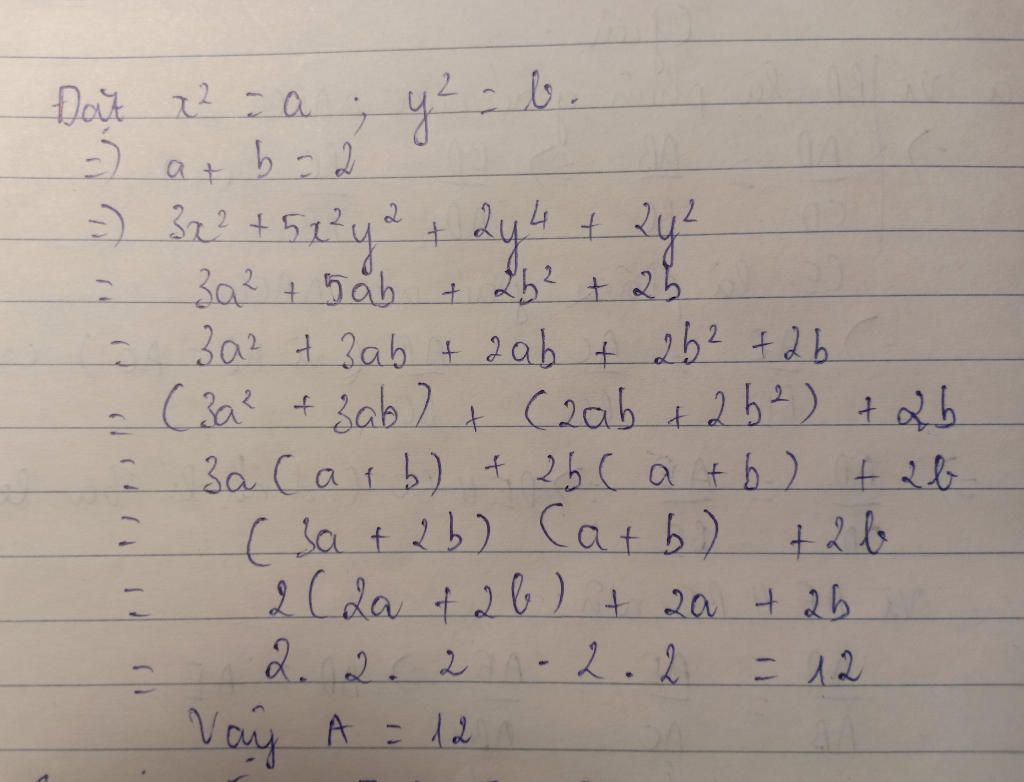 Đặt x² = a ; y² = b.
=) a + b = 2
=) 3x² + 5x²y² + 2y⁴ + 2y²
= 3a² + 5ab + 2b² + 2b
= 3a² + 3ab + 2ab + 2b² + 2b
= (3a² + 3ab) + (2ab + 2b²) + 2b
= 3a(a + b) + 2b(a + b) + 2b
= (3a + 2b) (a + b) + 2b
= 2(2a + 2b) + 2a + 2b
= 2. 2. 2 - 2. 2 = 12
Vậy A = 12